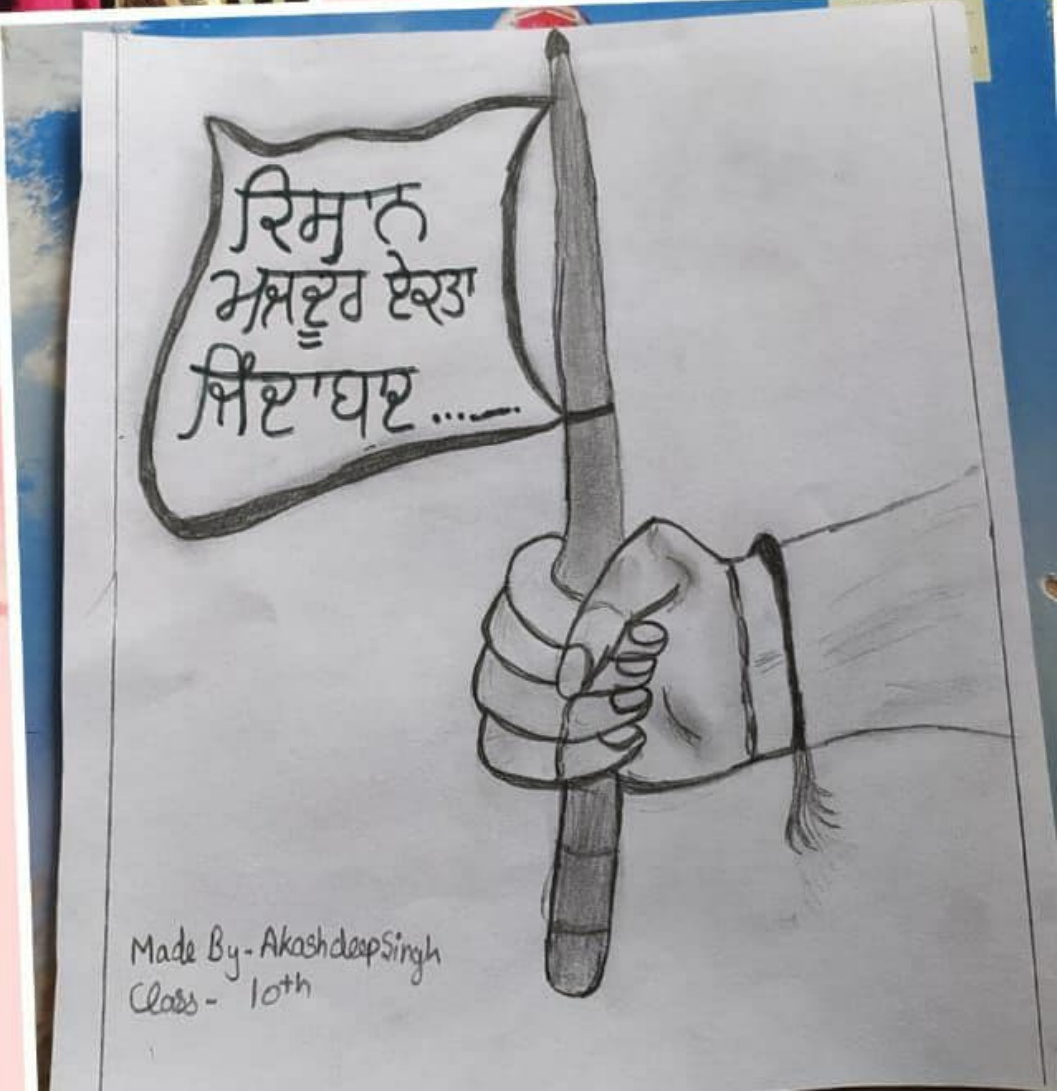 ਕਿਸਾਨ
ਮਜਦੂਰ ਏਕਤਾ
ਜਿੰਦਾਬਾਦ ...---
Made By - Akashdeep Singh
Class - 10th